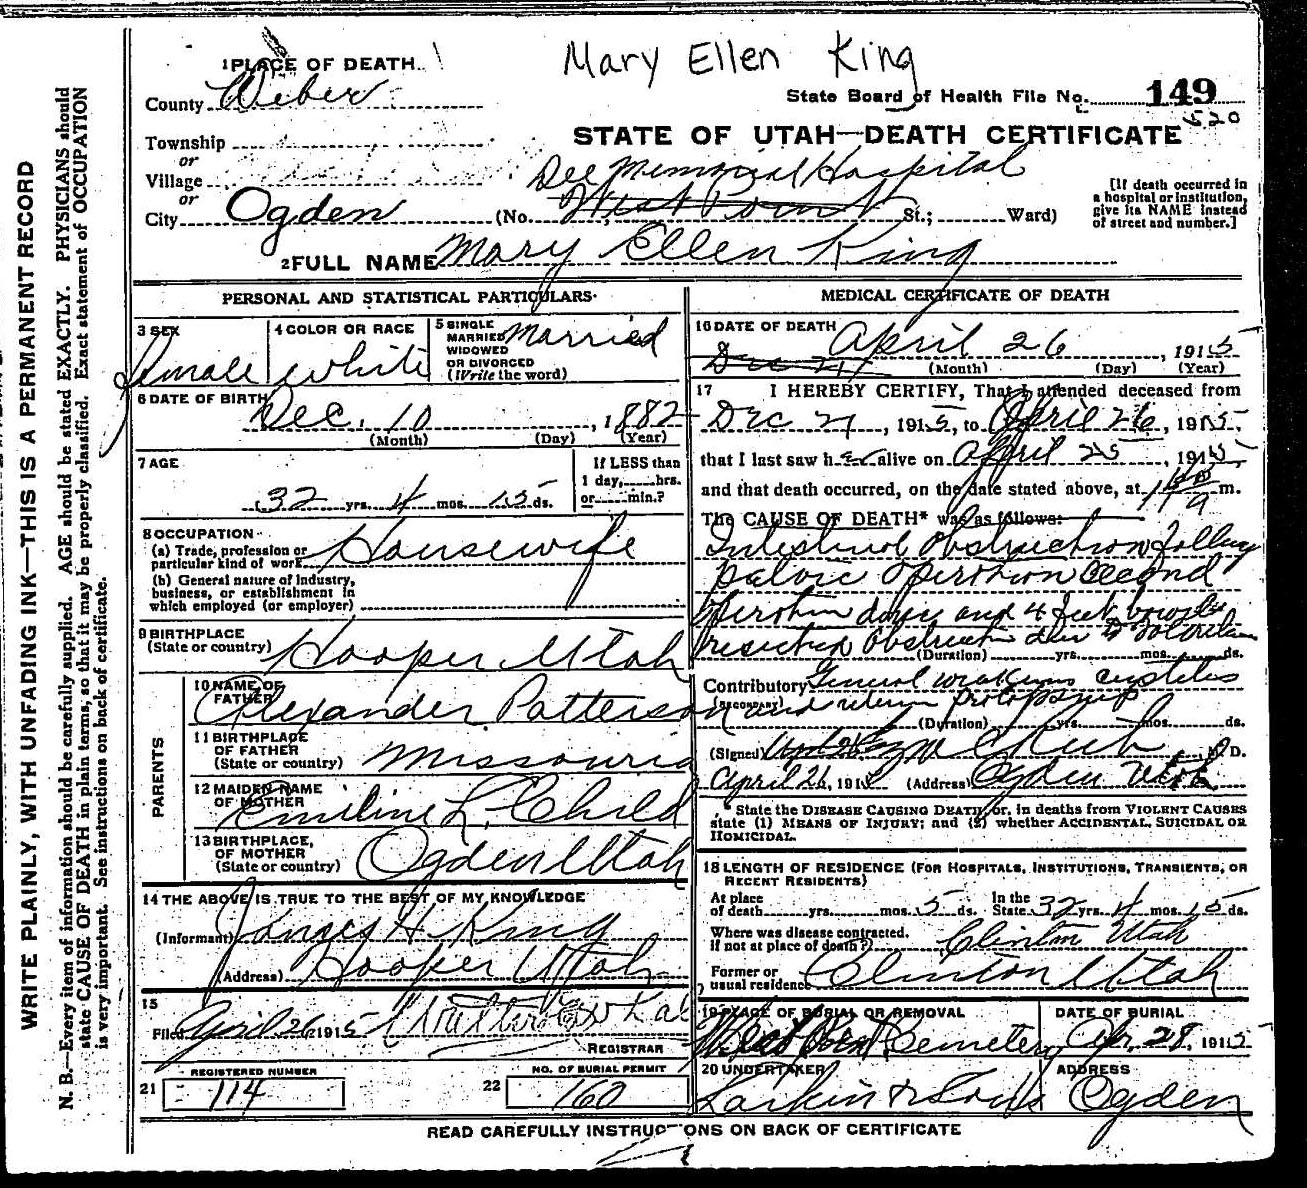 Mary Ellen King
1 PLACE OF DEATH
County Weber
State Board of Health File No. 149
520
Township
or
Village
or
City Ogden
STATE OF UTAH—DEATH CERTIFICATE
Dee Memorial Hospital
(No. West Point St.; Ward)
[If death occurred in
a hospital or institution,
give its NAME instead
of street and number.]
2 FULL NAME Mary Ellen King
PERSONAL AND STATISTICAL PARTICULARS
3 SEX
female
4 COLOR OR RACE
white
5 SINGLE
MARRIED
WIDOWED
OR DIVORCED
(Write the word)
Married
6 DATE OF BIRTH
Dec. 10, 1882
(Month) (Day) (Year)
7 AGE
32 yrs. 4 mos. 15 ds.
If LESS than
1 day, hrs.
or min.?
8 OCCUPATION
(a) Trade, profession or
particular kind of work Housewife
(b) General nature of Industry,
business, or establishment in
which employed (or employer)
9 BIRTHPLACE
(State or country) Hooper Utah
PARENTS
10 NAME OF
FATHER Alexander Patterson
11 BIRTHPLACE
OF FATHER
(State or country) Missouria
12 MAIDEN NAME
OF MOTHER Emiline L. Child
13 BIRTHPLACE,
OF MOTHER
(State or country) Ogden Utah
14 THE ABOVE IS TRUE TO THE BEST OF MY KNOWLEDGE
(Informant) James H. King
(Address) Hooper Utah
15
Filed April 26 1915
REGISTRAR
21 REGISTERED NUMBER
114
22 NO. OF BURIAL PERMIT
160
MEDICAL CERTIFICATE OF DEATH
16 DATE OF DEATH
Dec 21 April 26, 1915
(Month) (Day) (Year)
17 I HEREBY CERTIFY, That I attended deceased from
Dec 21, 1915, to April 26, 1915,
that I last saw her alive on April 25, 1915,
and that death occurred, on the date stated above, at m.
The CAUSE OF DEATH* was as follows:
Intestinal Obstruction following
pelvic operation Second
operation days and 4 feet bowels
resected obstruction due to
(Duration) yrs. mos. ds.
Contributory General weakness
(SECONDARY) and
(Duration) yrs. mos. ds.
(Signed) M.D.
April 26, 191 (Address) Ogden Utah
* State the DISEASE CAUSING DEATH, or, in deaths from VIOLENT CAUSES
state (1) MEANS OF INJURY; and (2) whether ACCIDENTAL, SUICIDAL OR
HOMICIDAL.
18 LENGTH OF RESIDENCE (FOR HOSPITALS, INSTITUTIONS, TRANSIENTS, OR
RECENT RESIDENTS)
At place
of death yrs. mos. 5 ds.
In the
State 32 yrs. 4 mos. 15 ds.
Where was disease contracted,
if not at place of death? Clinton Utah
Former or
usual residence Clinton Utah
19 PLACE OF BURIAL OR REMOVAL
West Point Cemetery
DATE OF BURIAL
Apr. 28, 1915
20 UNDERTAKER
Larkin & Sons
ADDRESS
Ogden
READ CAREFULLY INSTRUCTIONS ON BACK OF CERTIFICATE
WRITE PLAINLY, WITH UNFADING INK—THIS IS A PERMANENT RECORD
N. B.—Every item of information should be carefully supplied. AGE should be stated EXACTLY. PHYSICIANS should
state CAUSE OF DEATH in plain terms, so that it may be properly classified. Exact statement of OCCUPATION
is very important. See instructions on back of certificate.